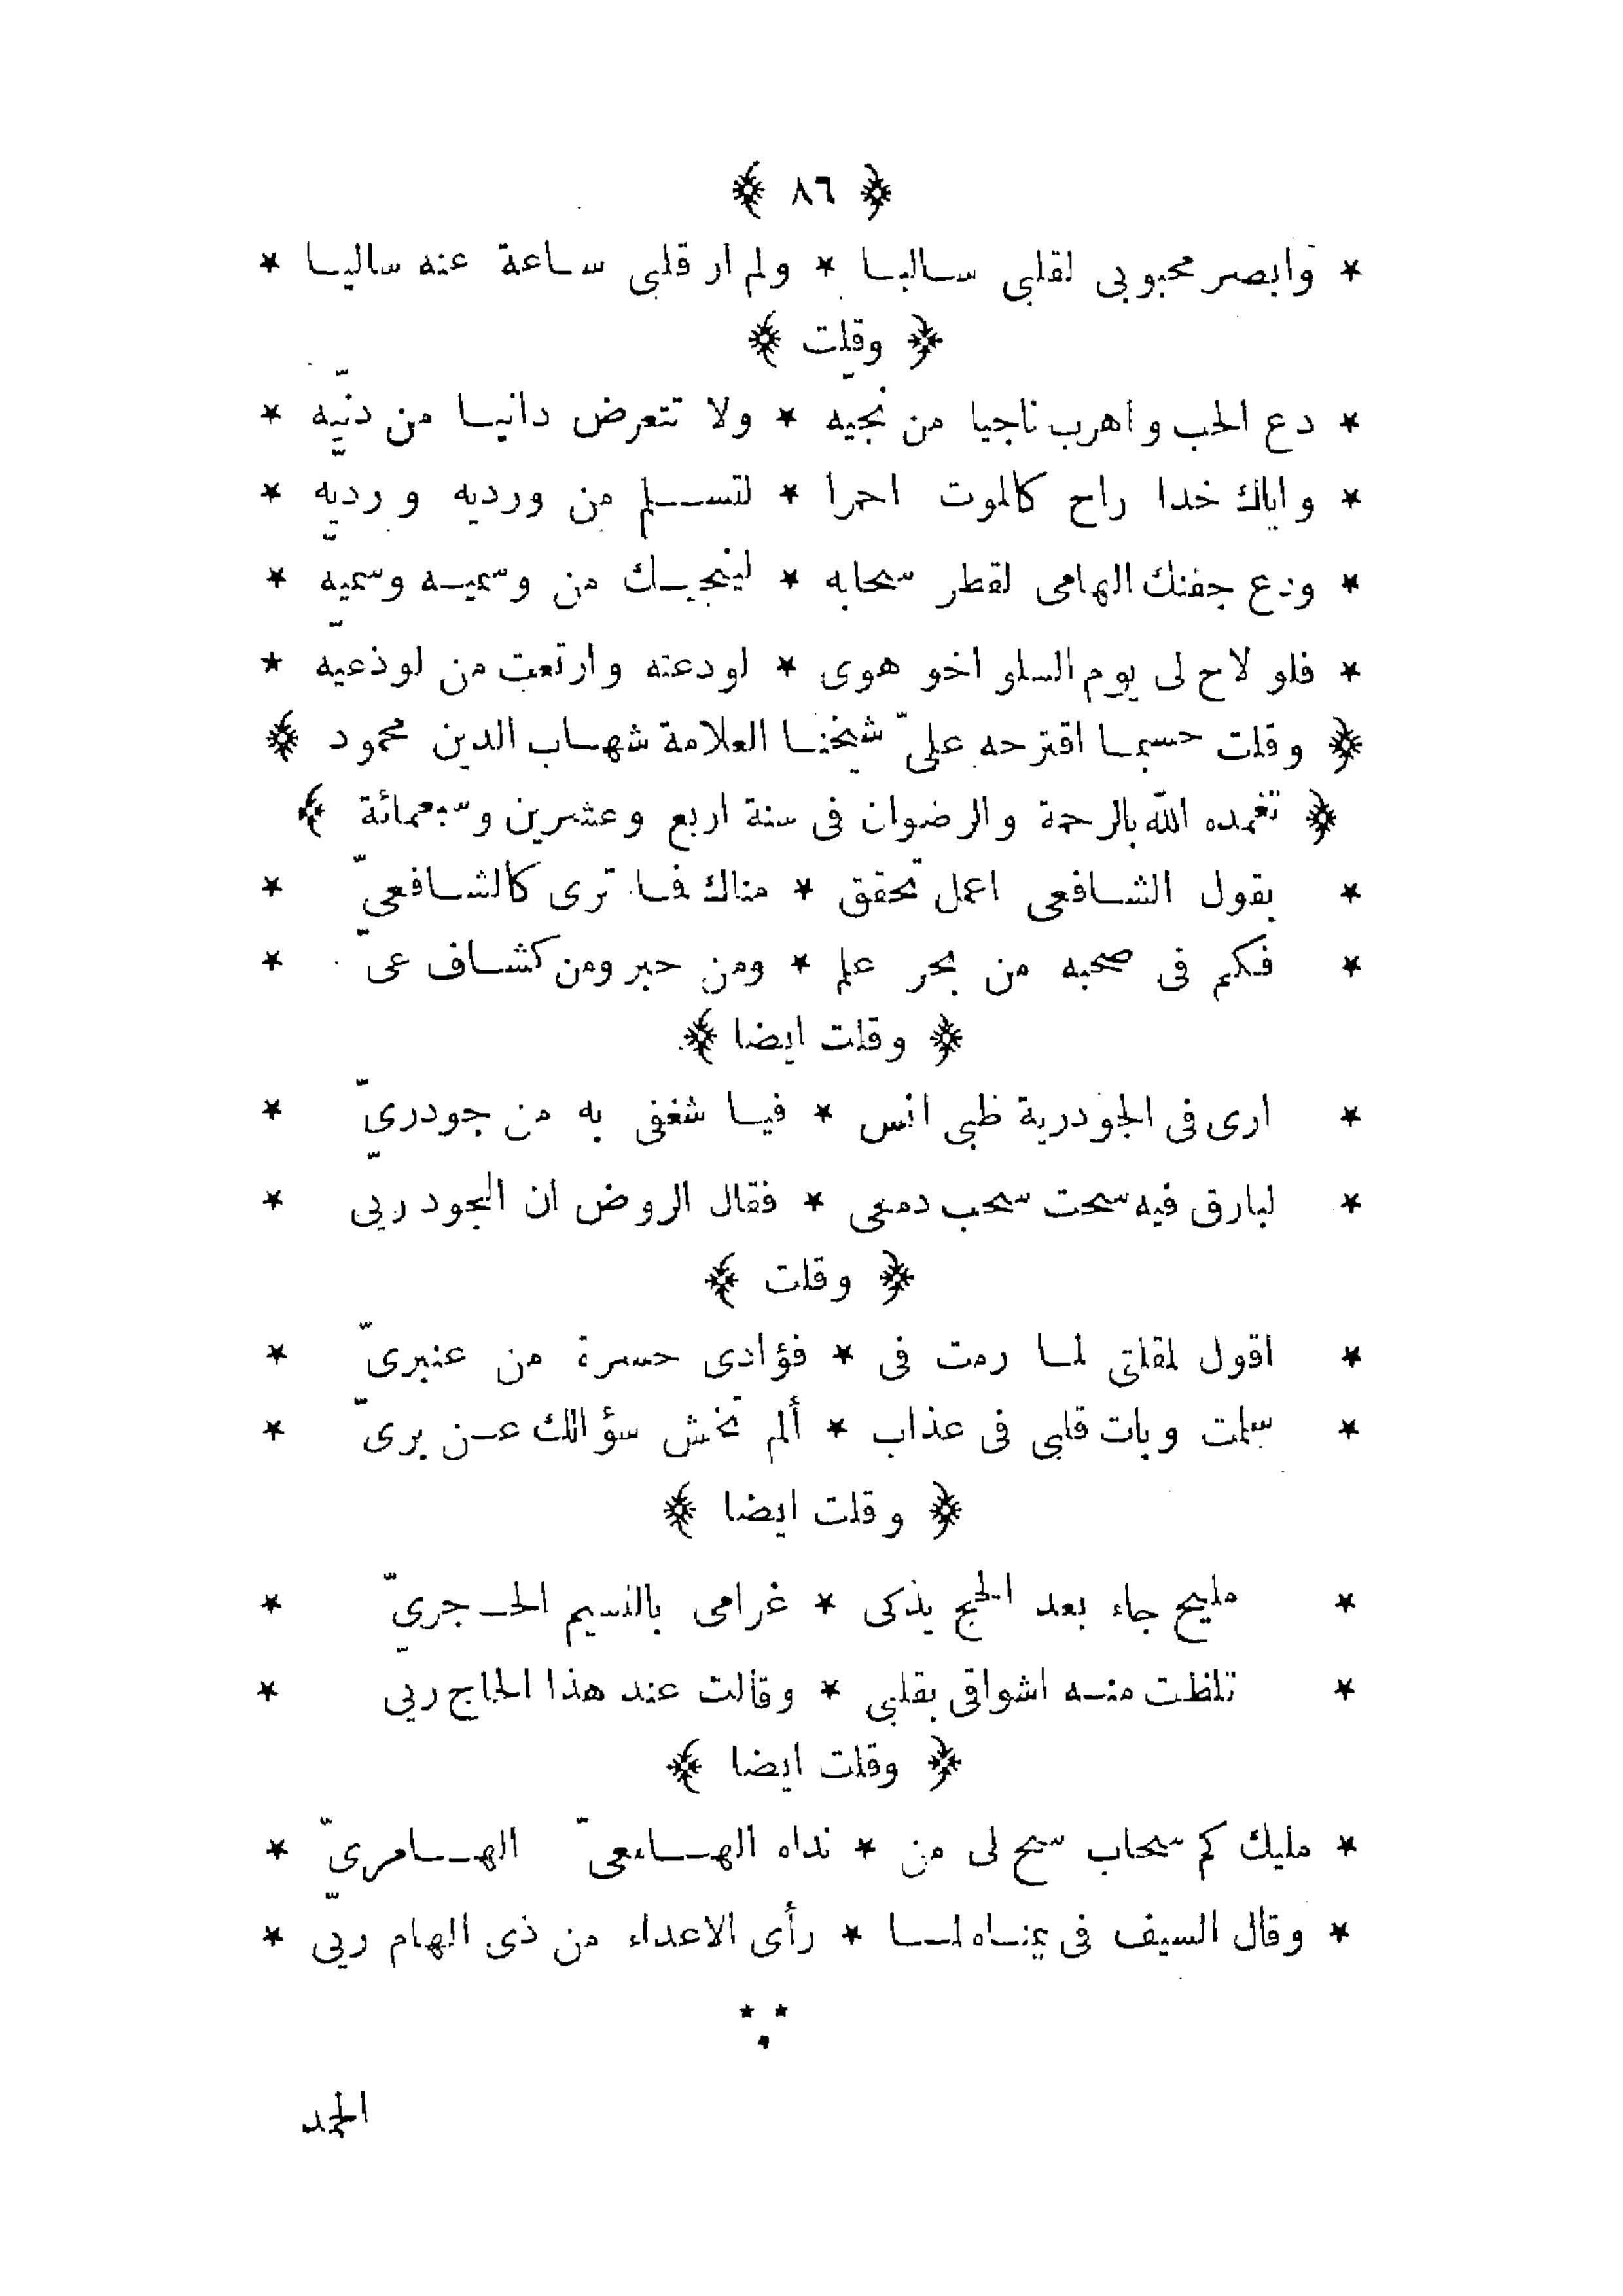 ﴿ ٨٦ ﴾
* وابصر محبوبى لقلبى سالبا * ولم ار قلبى ساعة عنه ساليا *
﴿ وقلت ﴾
* دع الحب واهرب ناجيا من نجيّه * ولا تتعرض دانيا من دنيّه *
* واياك خدا راح كالموت احمرا * لتسلم من ورديه ورديّه *
* ودع جفنك الهامى لقطر سحابه * لينجيك من وسميه وسميّه *
* فلو لاح لى يوم السلو اخو هوى * لودعته وارتعت من لوذعيّه *
﴿ وقلت حسبما اقترحه علىّ شيخنا العلامة شهاب الدين محمود ﴾
﴿ تغمده الله بالرحمة والرضوان فى سنة اربع وعشرين وسبعمائة ﴾
* يقول الشافعى اعمل تحقق * مناك فما ترى كالشافعىّ *
* فكم فى صحبه من بحر علم * ومن حبر ومن كشاف عىّ *
﴿ وقلت ايضا ﴾
* ارى فى الجودرية ظبى انس * فيا شغفى به من جودرىّ *
* لبارق فيه سحت سحب دمعى * فقال الروض ان الجود ريّى *
﴿ وقلت ﴾
* اقول لمقلتى لما رمت فى * فؤادى حسرة من عنبرىّ *
* سلمت وبات قلبى فى عذاب * ألم تخش سؤالك عن برىّ *
﴿ وقلت ايضا ﴾
* مليح جاء بعد الحج يذكى * غرامى بالنسيم الحاجرىّ *
* تلظت منه اشواقى بقلبى * وقالت عند هذا الحاج ريّى *
﴿ وقلت ايضا ﴾
* مليك كم سحاب سح لى من * نداه الهامعىّ الهامرىّ *
* وقال السيف فى يمناه لما * رأى الاعداء من ذى الهام ريّى *
* *
*
الحمد